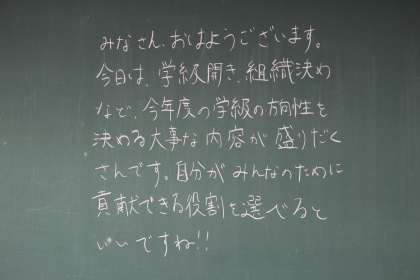 みなさん、おはようございます。
今日は、学級開き、組織決め
など、今年度の学級の方向性を
決める大事な内容が盛りだく
さんです。自分がみんなのために
貢献できる役割を選べると
いいですね!!